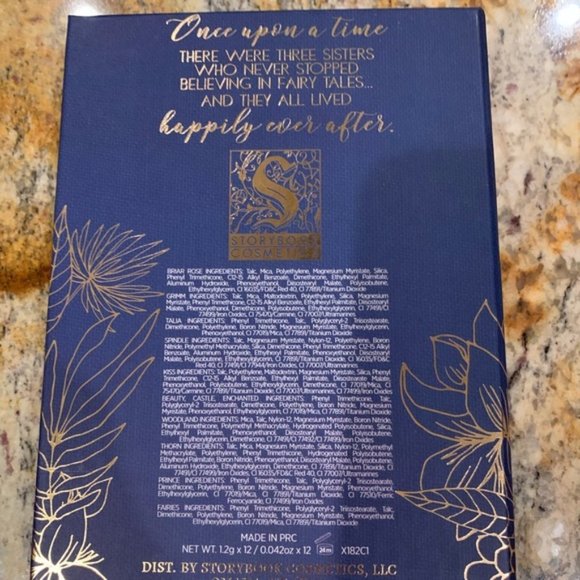 Once upon a time
THERE WERE THREE SISTERS
WHO NEVER STOPPED
BELIEVING IN FAIRY TALES...
AND THEY ALL LIVED
happily ever after.
S
STORYBOOK
COSMETICS
BRIAR ROSE INGREDIENTS: Talc, Mica, Polyethylene, Magnesium Myristate, Silica,
Phenyl Trimethicone, C12-15 Alkyl Benzoate, Dimethicone, Ethylhexyl Palmitate,
Aluminum Hydroxide, Phenoxyethanol, Diisostearyl Malate, Polyisobutene,
Ethylhexylglycerin, CI 16035/FD&C Red 40, CI 77891/Titanium Dioxide
GRIMM INGREDIENTS: Talc, Mica, Maltodextrin, Polyethylene, Silica, Magnesium
Myristate, Phenyl Trimethicone, C12-15 Alkyl Benzoate, Ethylhexyl Palmitate,
Phenoxyethanol, Diisostearyl Malate, Polyisobutene, Ethylhexylglycerin, CI 77491/CI
77499/Iron Oxides, CI 75470/Carmine, CI 77007/Ultramarines
TALIA INGREDIENTS: Phenyl Trimethicone, Talc, Polyglyceryl-2 Triisostearate,
Dimethicone, Polyethylene, Boron Nitride, Magnesium Myristate, Ethylhexylglycerin,
Phenoxyethanol, CI 77019/Mica, CI 77891/Titanium Dioxide
SPINDLE INGREDIENTS: Talc, Magnesium Myristate, Nylon-12, Polyethylene, Boron
Nitride, Polymethyl Methacrylate, Silica, Dimethicone, Phenyl Trimethicone, C12-15 Alkyl
Benzoate, Aluminum Hydroxide, Ethylhexyl Palmitate, Phenoxyethanol, Diisostearyl
Malate, Polyisobutene, Ethylhexylglycerin, CI 77891/Titanium Dioxide, CI 16035/FD&C
Red 40, CI 77491/CI 77499/Iron Oxides, CI 77007/Ultramarines
KISS INGREDIENTS: Talc, Polyethylene, Maltodextrin, Magnesium Myristate, Silica, Phenyl
Trimethicone, C12-15 Alkyl Benzoate, Ethylhexyl Palmitate, Diisostearyl Malate,
Phenoxyethanol, Polyisobutene, Ethylhexylglycerin, Dimethicone, CI 77019/Mica, CI
75470/Carmine, CI 77891/Titanium Dioxide, CI 77007/Ultramarines
BEAUTY, CASTLE, ENCHANTED INGREDIENTS: Phenyl Trimethicone, Talc,
Polyglyceryl-2 Triisostearate, Dimethicone, Polyethylene, Boron Nitride, Magnesium
Myristate, Ethylhexylglycerin, Phenoxyethanol, CI 77019/Mica, CI 77891/Titanium Dioxide
WOODLAND INGREDIENTS: Mica, Talc, Nylon-12, Magnesium Myristate, Boron Nitride,
Phenyl Trimethicone, Polymethyl Methacrylate, Hydrogenated Polyisobutene, Silica,
Ethylhexyl Palmitate, Phenoxyethanol, Diisostearyl Malate, Polyisobutene,
Ethylhexylglycerin, Dimethicone, CI 77491/CI 77492/CI 77499/Iron Oxides
THORN INGREDIENTS: Talc, Mica, Magnesium Myristate, Silica, Nylon-12, Polymethyl
Methacrylate, Polyethylene, Phenyl Trimethicone, Hydrogenated Polyisobutene,
Ethylhexyl Palmitate, Boron Nitride, Phenoxyethanol, Diisostearyl Malate, Polyisobutene,
Aluminum Hydroxide, Ethylhexylglycerin, Dimethicone, CI 77891/Titanium Dioxide, CI
77491/CI 77499/Iron Oxides, CI 16035/FD&C Red 40, CI 77007/Ultramarines
PRINCE INGREDIENTS: Phenyl Trimethicone, Talc, Polyglyceryl-2 Triisostearate,
Dimethicone, Polyethylene, Boron Nitride, Magnesium Myristate, Phenoxyethanol,
Ethylhexylglycerin, CI 77019/Mica, CI 77891/Titanium Dioxide, CI 77510/Ferric
Ferrocyanide, CI 77499/Iron Oxides
FAIRIES INGREDIENTS: Phenyl Trimethicone, Talc, Polyglyceryl-2 Triisostearate,
Dimethicone, Polyethylene, Boron Nitride, Magnesium Myristate, Phenoxyethanol,
Ethylhexylglycerin, CI 77019/Mica, CI 77891/Titanium Dioxide
MADE IN PRC
NET WT. 1.2g x 12 / 0.042oz x 12 24m X182C1
DIST. BY STORYBOOK COSMETICS, LLC